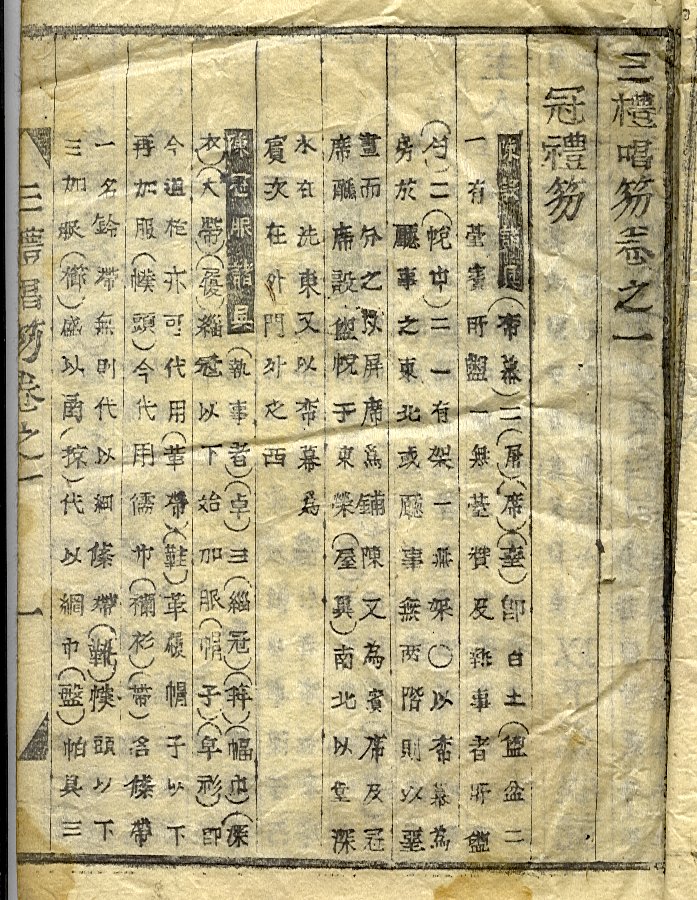 三禮唱笏卷之一
冠禮笏
陳設諸具(帟幕)二(屏)(席)(堊)卽白土(盥盆)二
一有臺賓所盥一無臺贊及執事者所盥
(勺)二(帨巾)二一有架一無架〇以帟幕爲
房於廳事之東北或廳事無兩階則以堊
畫而分之以屏席爲鋪陳又爲賓席及冠
席醮席設盥帨于東榮(屋翼)南北以堂深
水在洗東又以帟幕爲
賓次在外門外之西
陳冠服諸具(執事者)(卓)三(緇冠)(笄)(幅巾)(深
衣)(大帶)(履)緇冠以下始加服(帽子)(皁衫)卽
今道袍亦可代用(革帶)(鞋)革帶帽子以下
再加服(幞頭)今代用儒巾(襴衫)(帶)名絛帶
一名鈴帶無則代以細絛帶(靴)幞頭以下
三加服(櫛)盛以函(掠)代以網巾(盤)帕具三
三禮唱笏卷之一
一